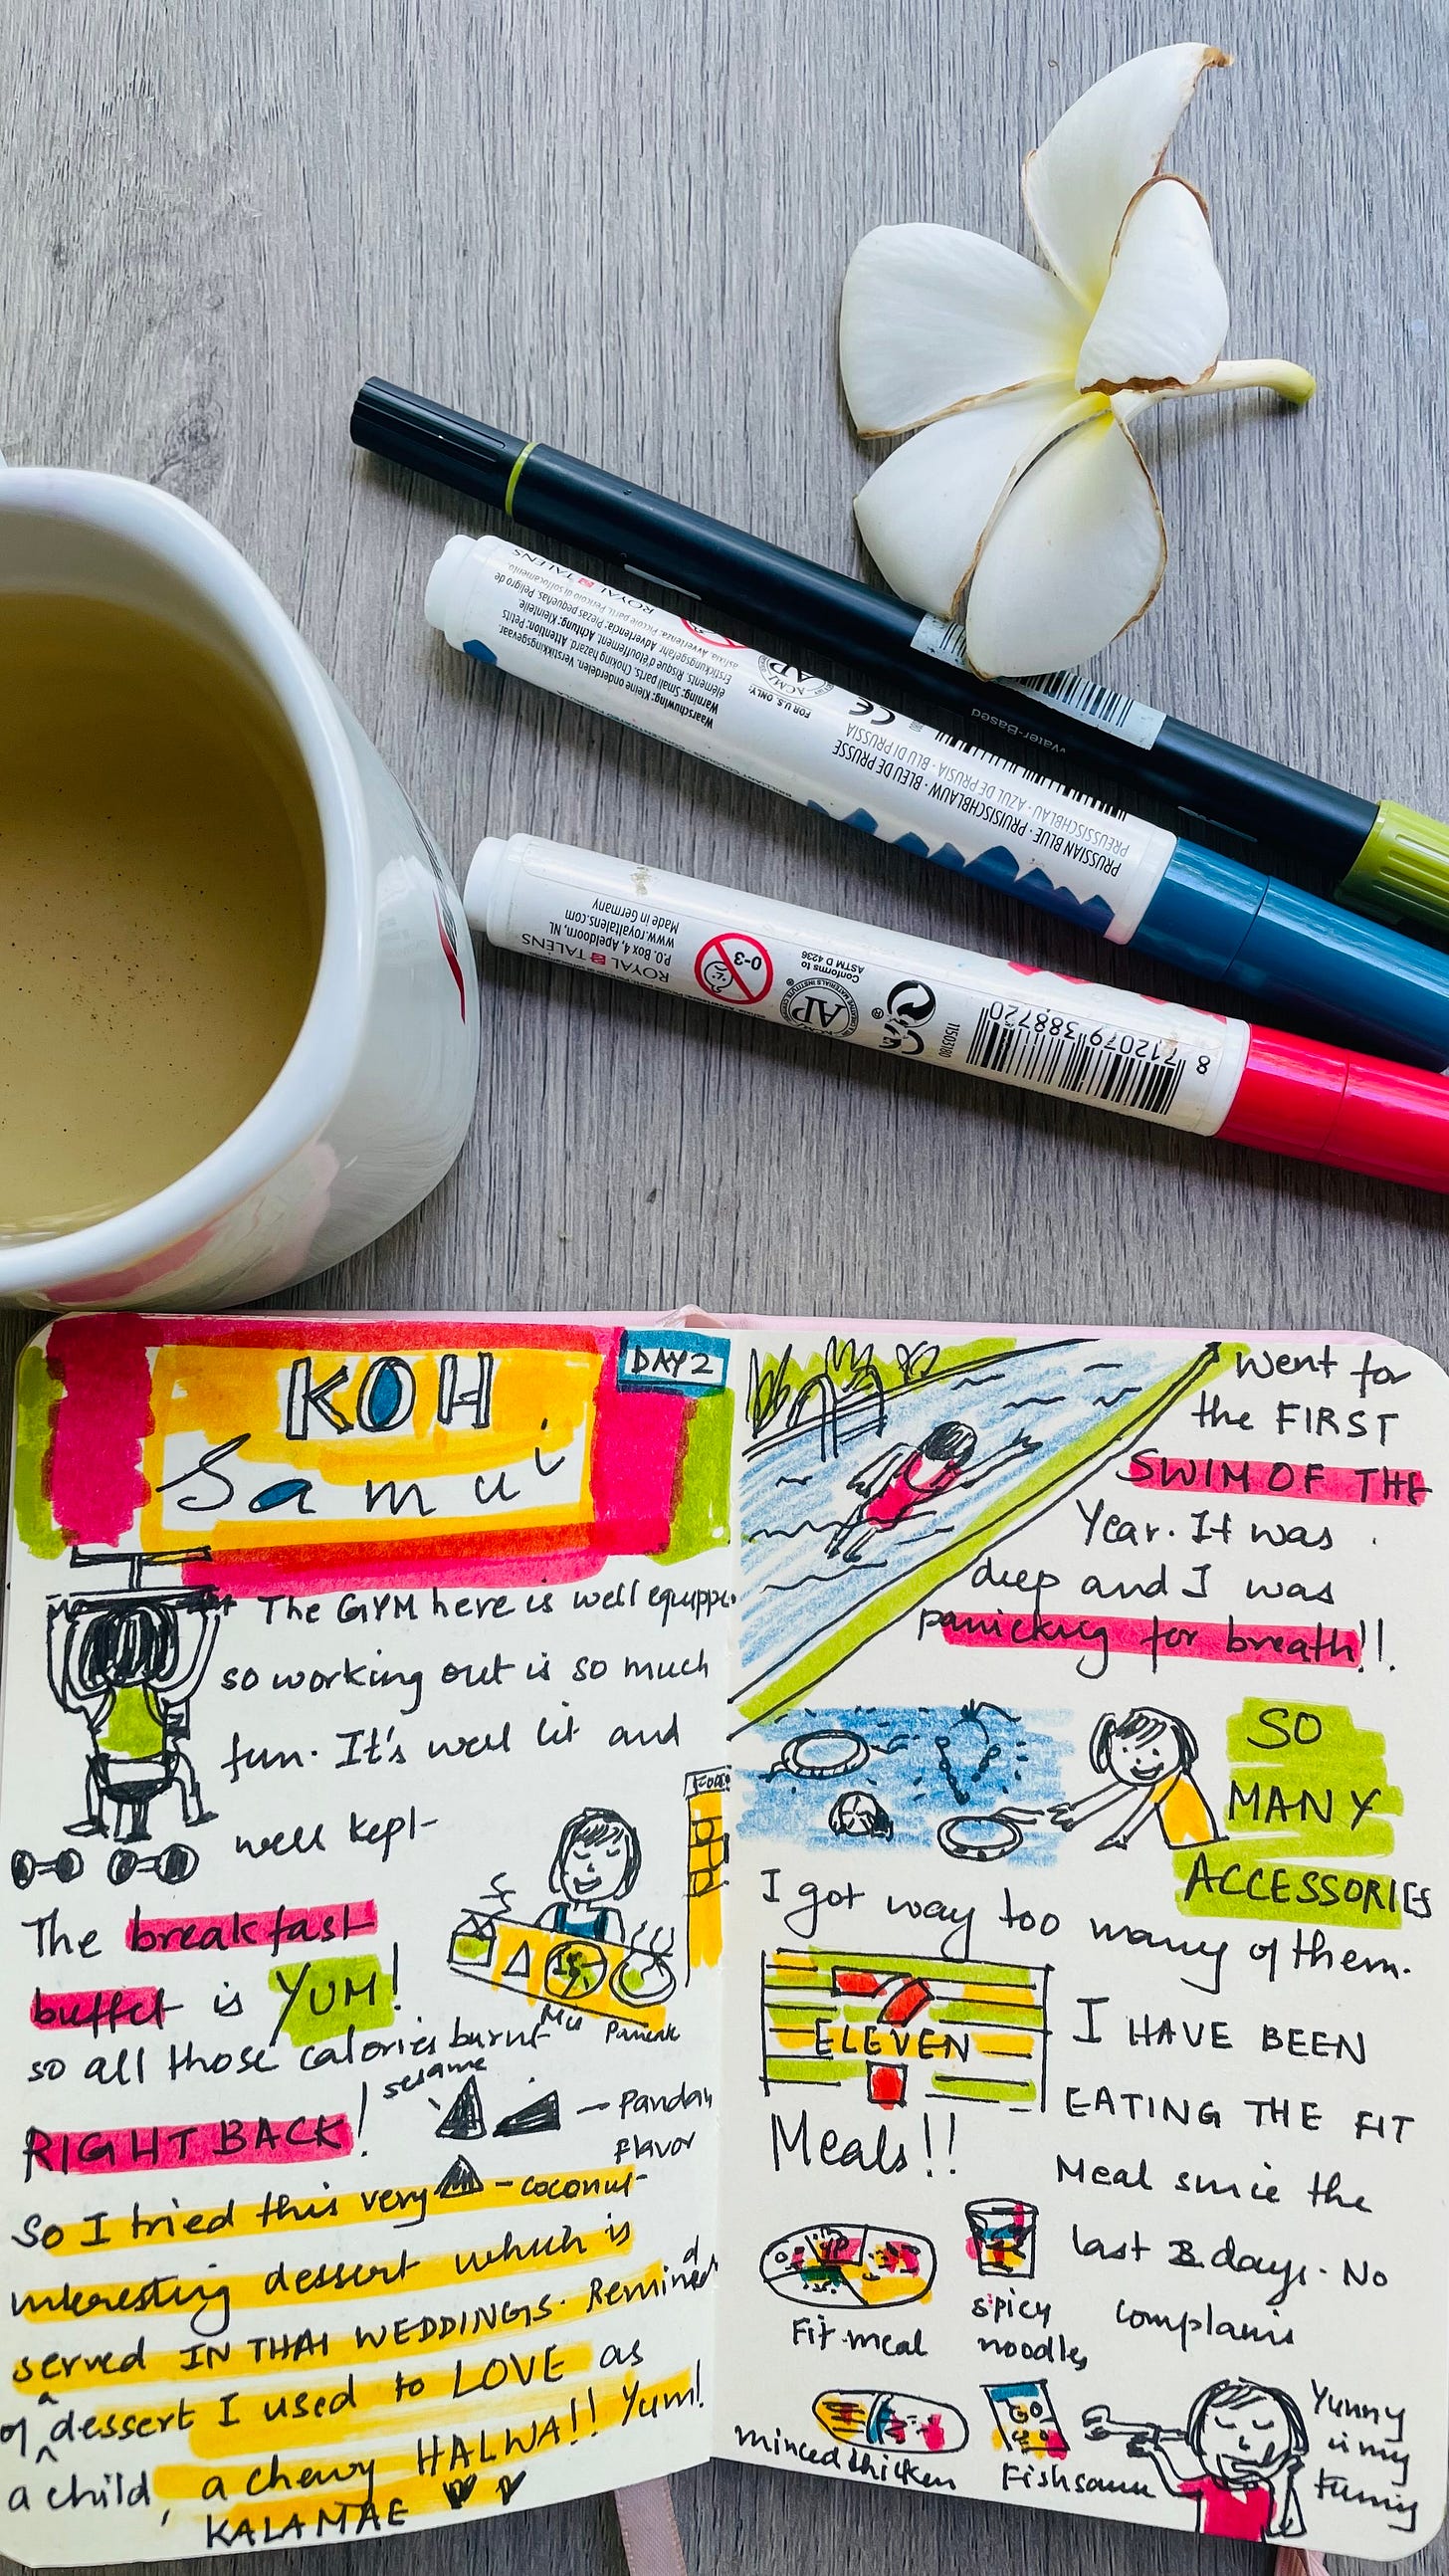 Water-Based
ROYAL TALENS
Waarschuwing: Kleine onderdelen. Verstikkingsgevaar
Warning: Small parts. Choking hazard. Attention: Petits
éléments. Risque d'étouffement. Achtung: Kleinteile.
Erstickungsgefahr. Advertencia: Piezas pequeñas. Peligro de
asfixia. Avvertenza: Piccole parti. Pericolo di soffocamento.
FOR U.S. ONLY:
AP
ACMI
CE
PRUSSIAN BLUE · PRUISISCHBLAUW · BLEU DE PRUSSE
PREUSSISCHBLAU · AZUL DE PRUSIA · BLU DI PRUSSIA
ROYAL TALENS
P.O. Box 4, Apeldoorn, NL
www.royaltalens.com
Made in Germany
0-3
AP
Conforms to
ASTM D 4236
CE
11503180
8 712079 388720
KOH
Samui
DAY 2
The GYM here is well equippe
so working out is so much
fun. It's well lit and
well kept
The breakfast
buffet is YUM!
so all those calories burnt
RIGHT BACK!
Mu
Pancak
sesame
Pandan
flavor
coconut
So I tried this very
interesting dessert which is
served IN THAI WEDDINGS. Reminded
of a dessert I used to LOVE as
a child, a chewy HALWA!! Yum!
KALAMAE
Went for
the FIRST
SWIM OF THE
Year. It was
deep and I was
panicking for breath!!
SO
MANY
ACCESSORIES
I got way too many of them.
ELEVEN
Meals!!
I HAVE BEEN
EATING THE FIT
Meal since the
last 2 days. No
complains
Fit meal
spicy
noodles
minced chicken
Fish sauce
Yummy
in my
tummy